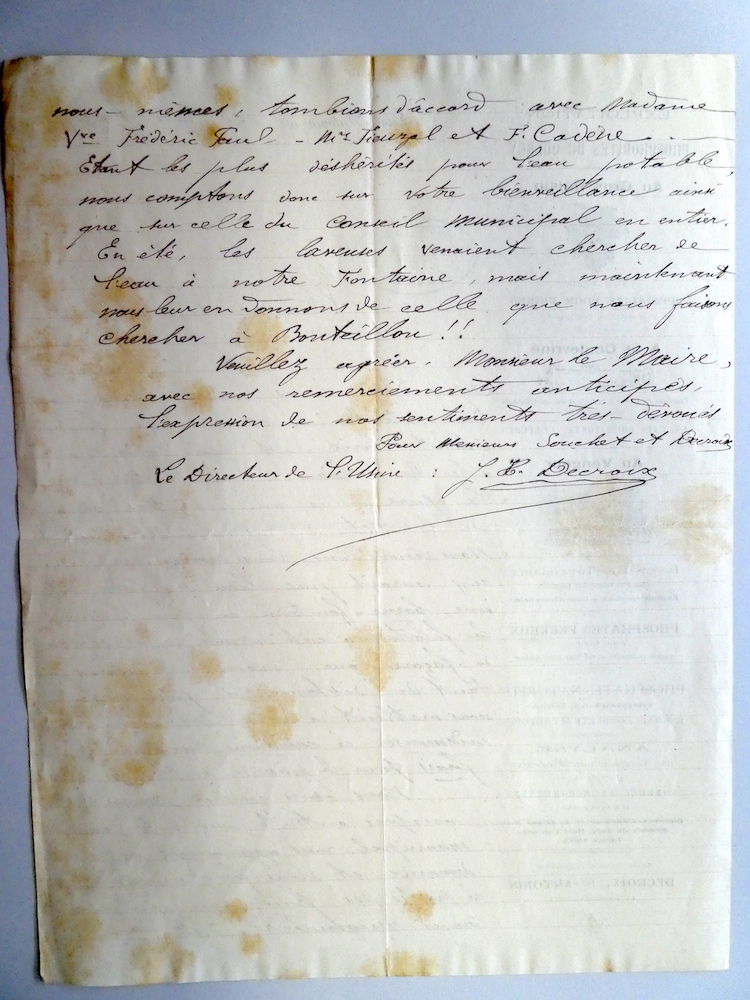 nous-mêmes, tombions d'accord avec Madame
Vve Frédéric Paul - Mrs Fieuzal et F. Cadène.
Etant les plus déshérités pour l'eau potable,
nous comptons donc sur votre bienveillance ainsi
que sur celle du Conseil Municipal en entier.
En été, les laveuses venaient chercher de
l'eau à notre Fontaine, mais maintenant
nous leur en donnons de celle que nous faisons
chercher à Bonteillou !!
Veuillez agréer, Monsieur le Maire,
avec nos remerciements anticipés,
l'expression de nos sentiments très-dévoués
Pour Messieurs Souchet et Decroix
Le Directeur de l'Usine : J. B. Decroix